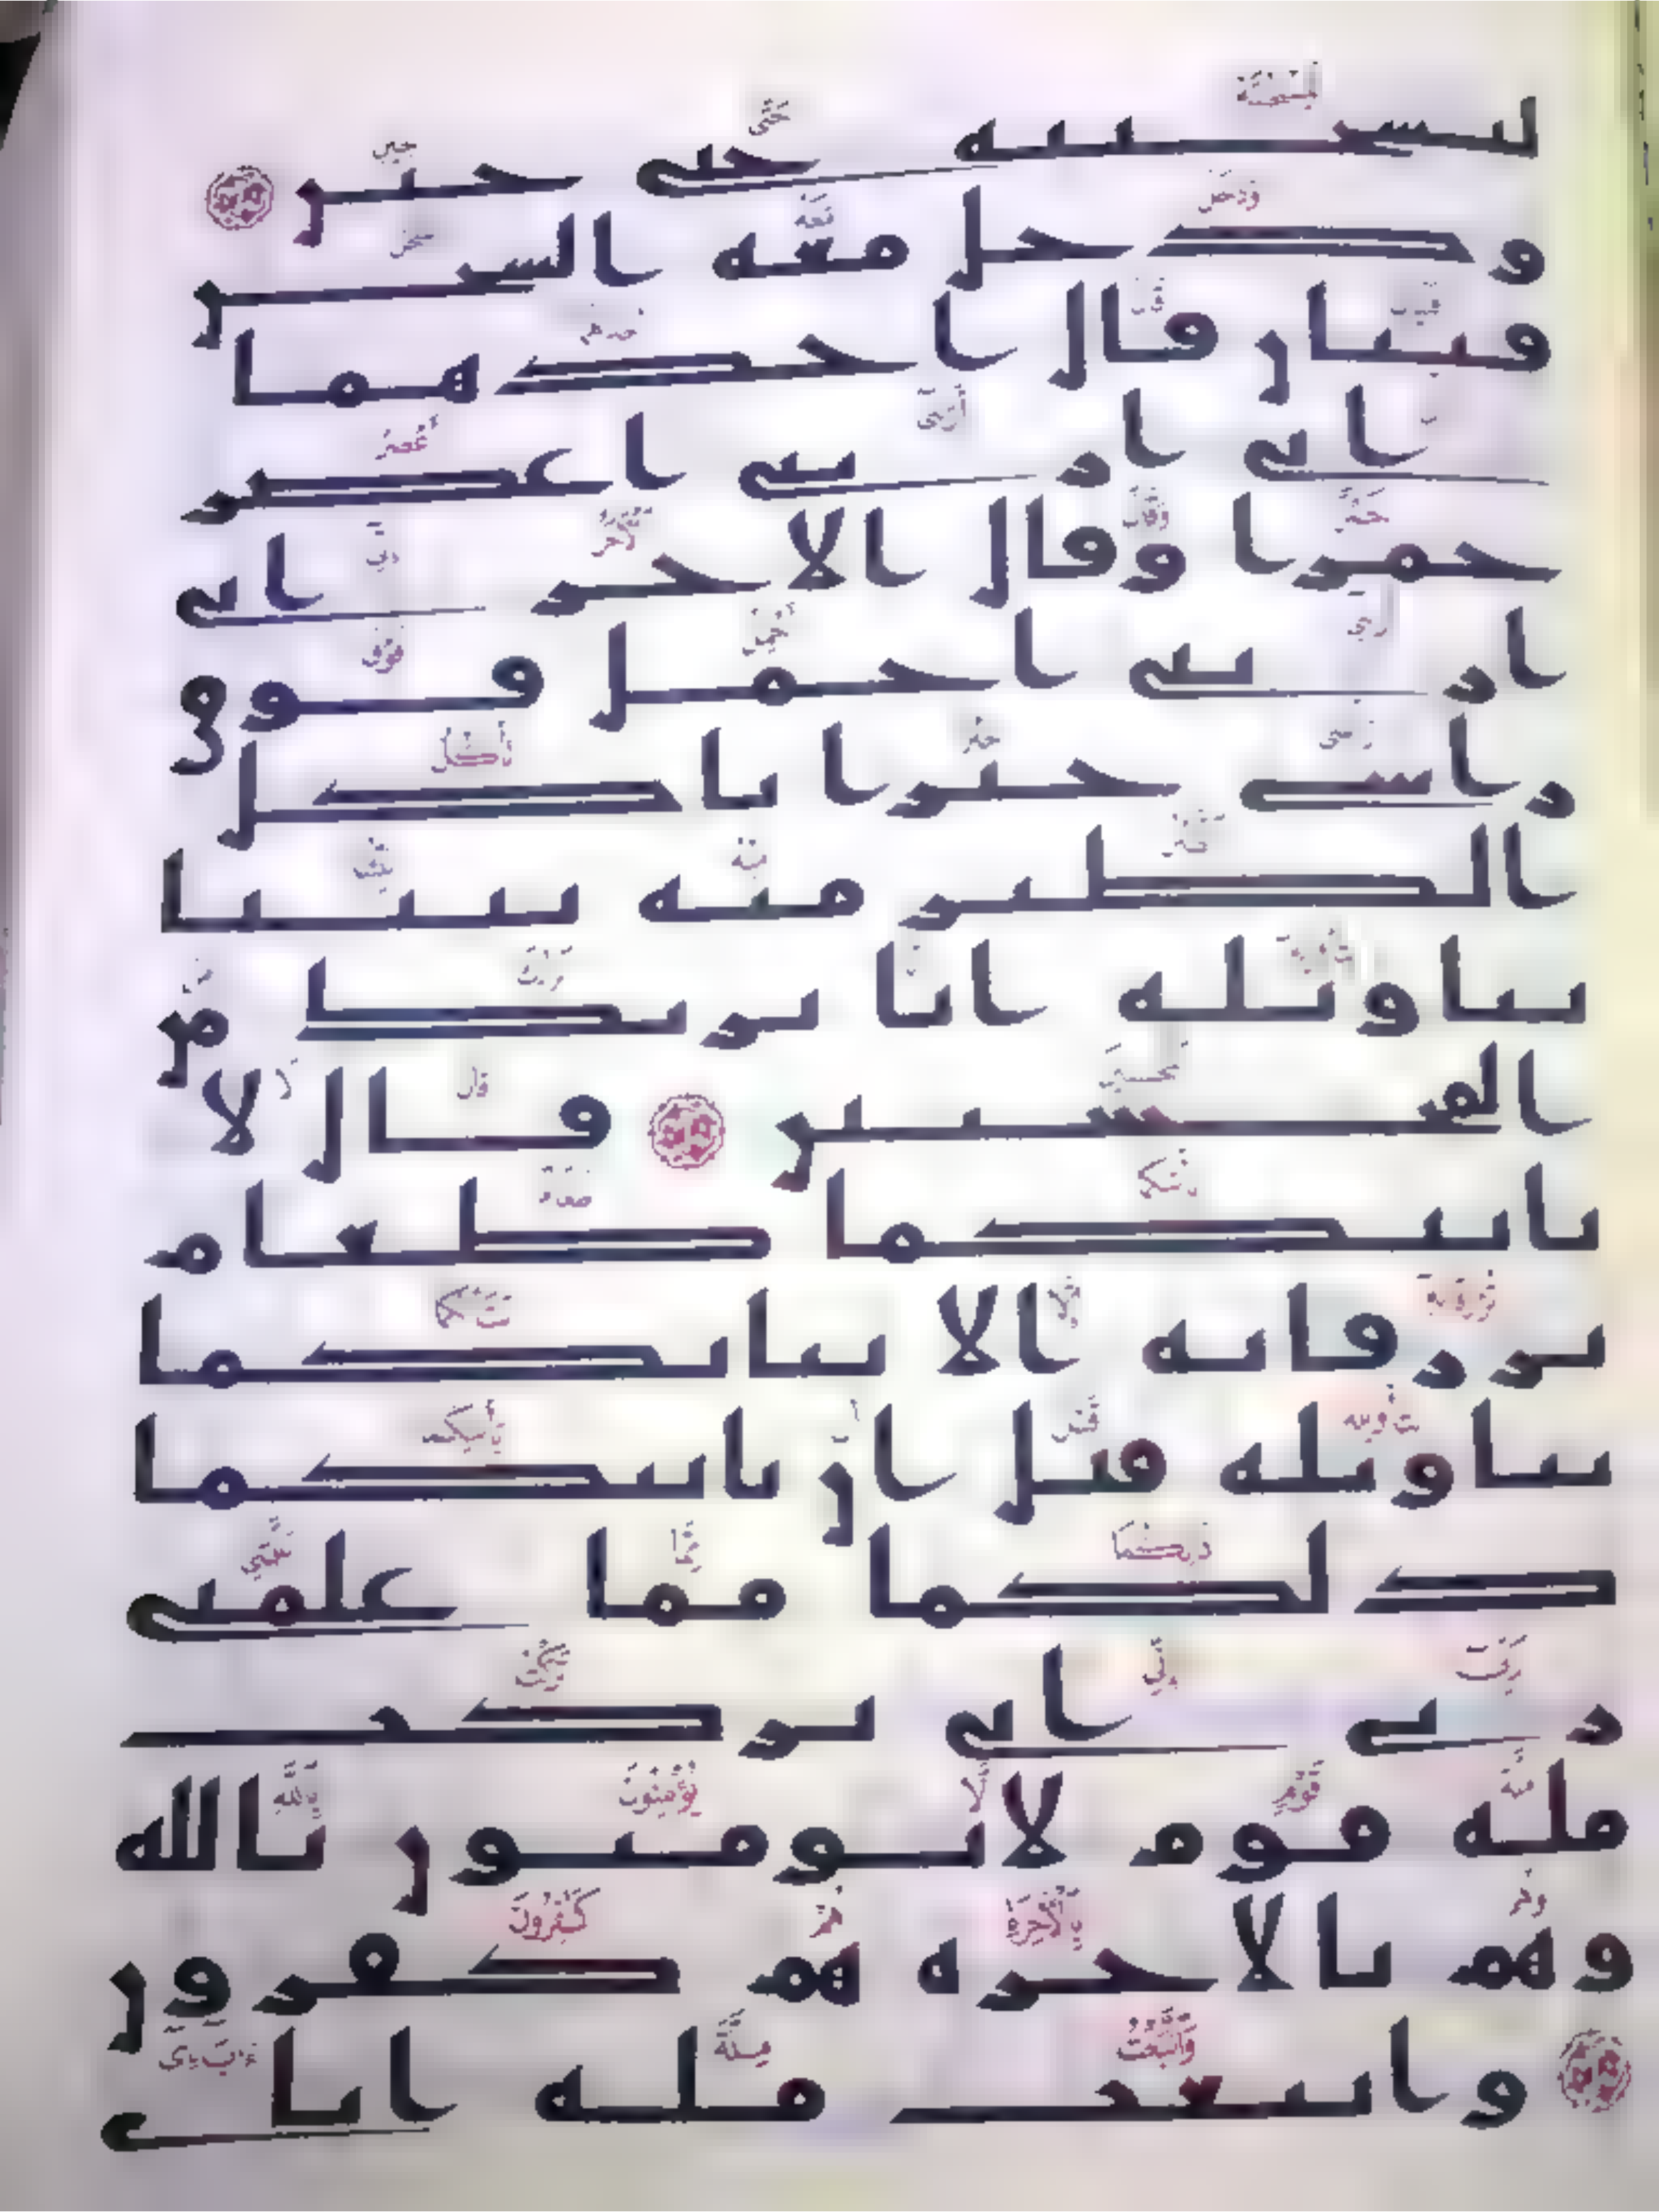 ليسجننه حتى حين
ودخل معه السجن
فتيان قال احدهما
اني اريني اعصر
خمرا وقال الاخر اني
اريني احمل فوق
راسي خبزا تاكل
الطير منه نبينا
بتاويله انا نريك من
المحسنين قال لا
ياتيكما طعام
ترزقانه الا نباتكما
بتاويله قبل ان ياتيكما
ذلكما مما علمني
ربي اني تركت
ملة قوم لا يومنون بالله
وهم بالاخرة هم كفرون
واتبعت ملة اباي